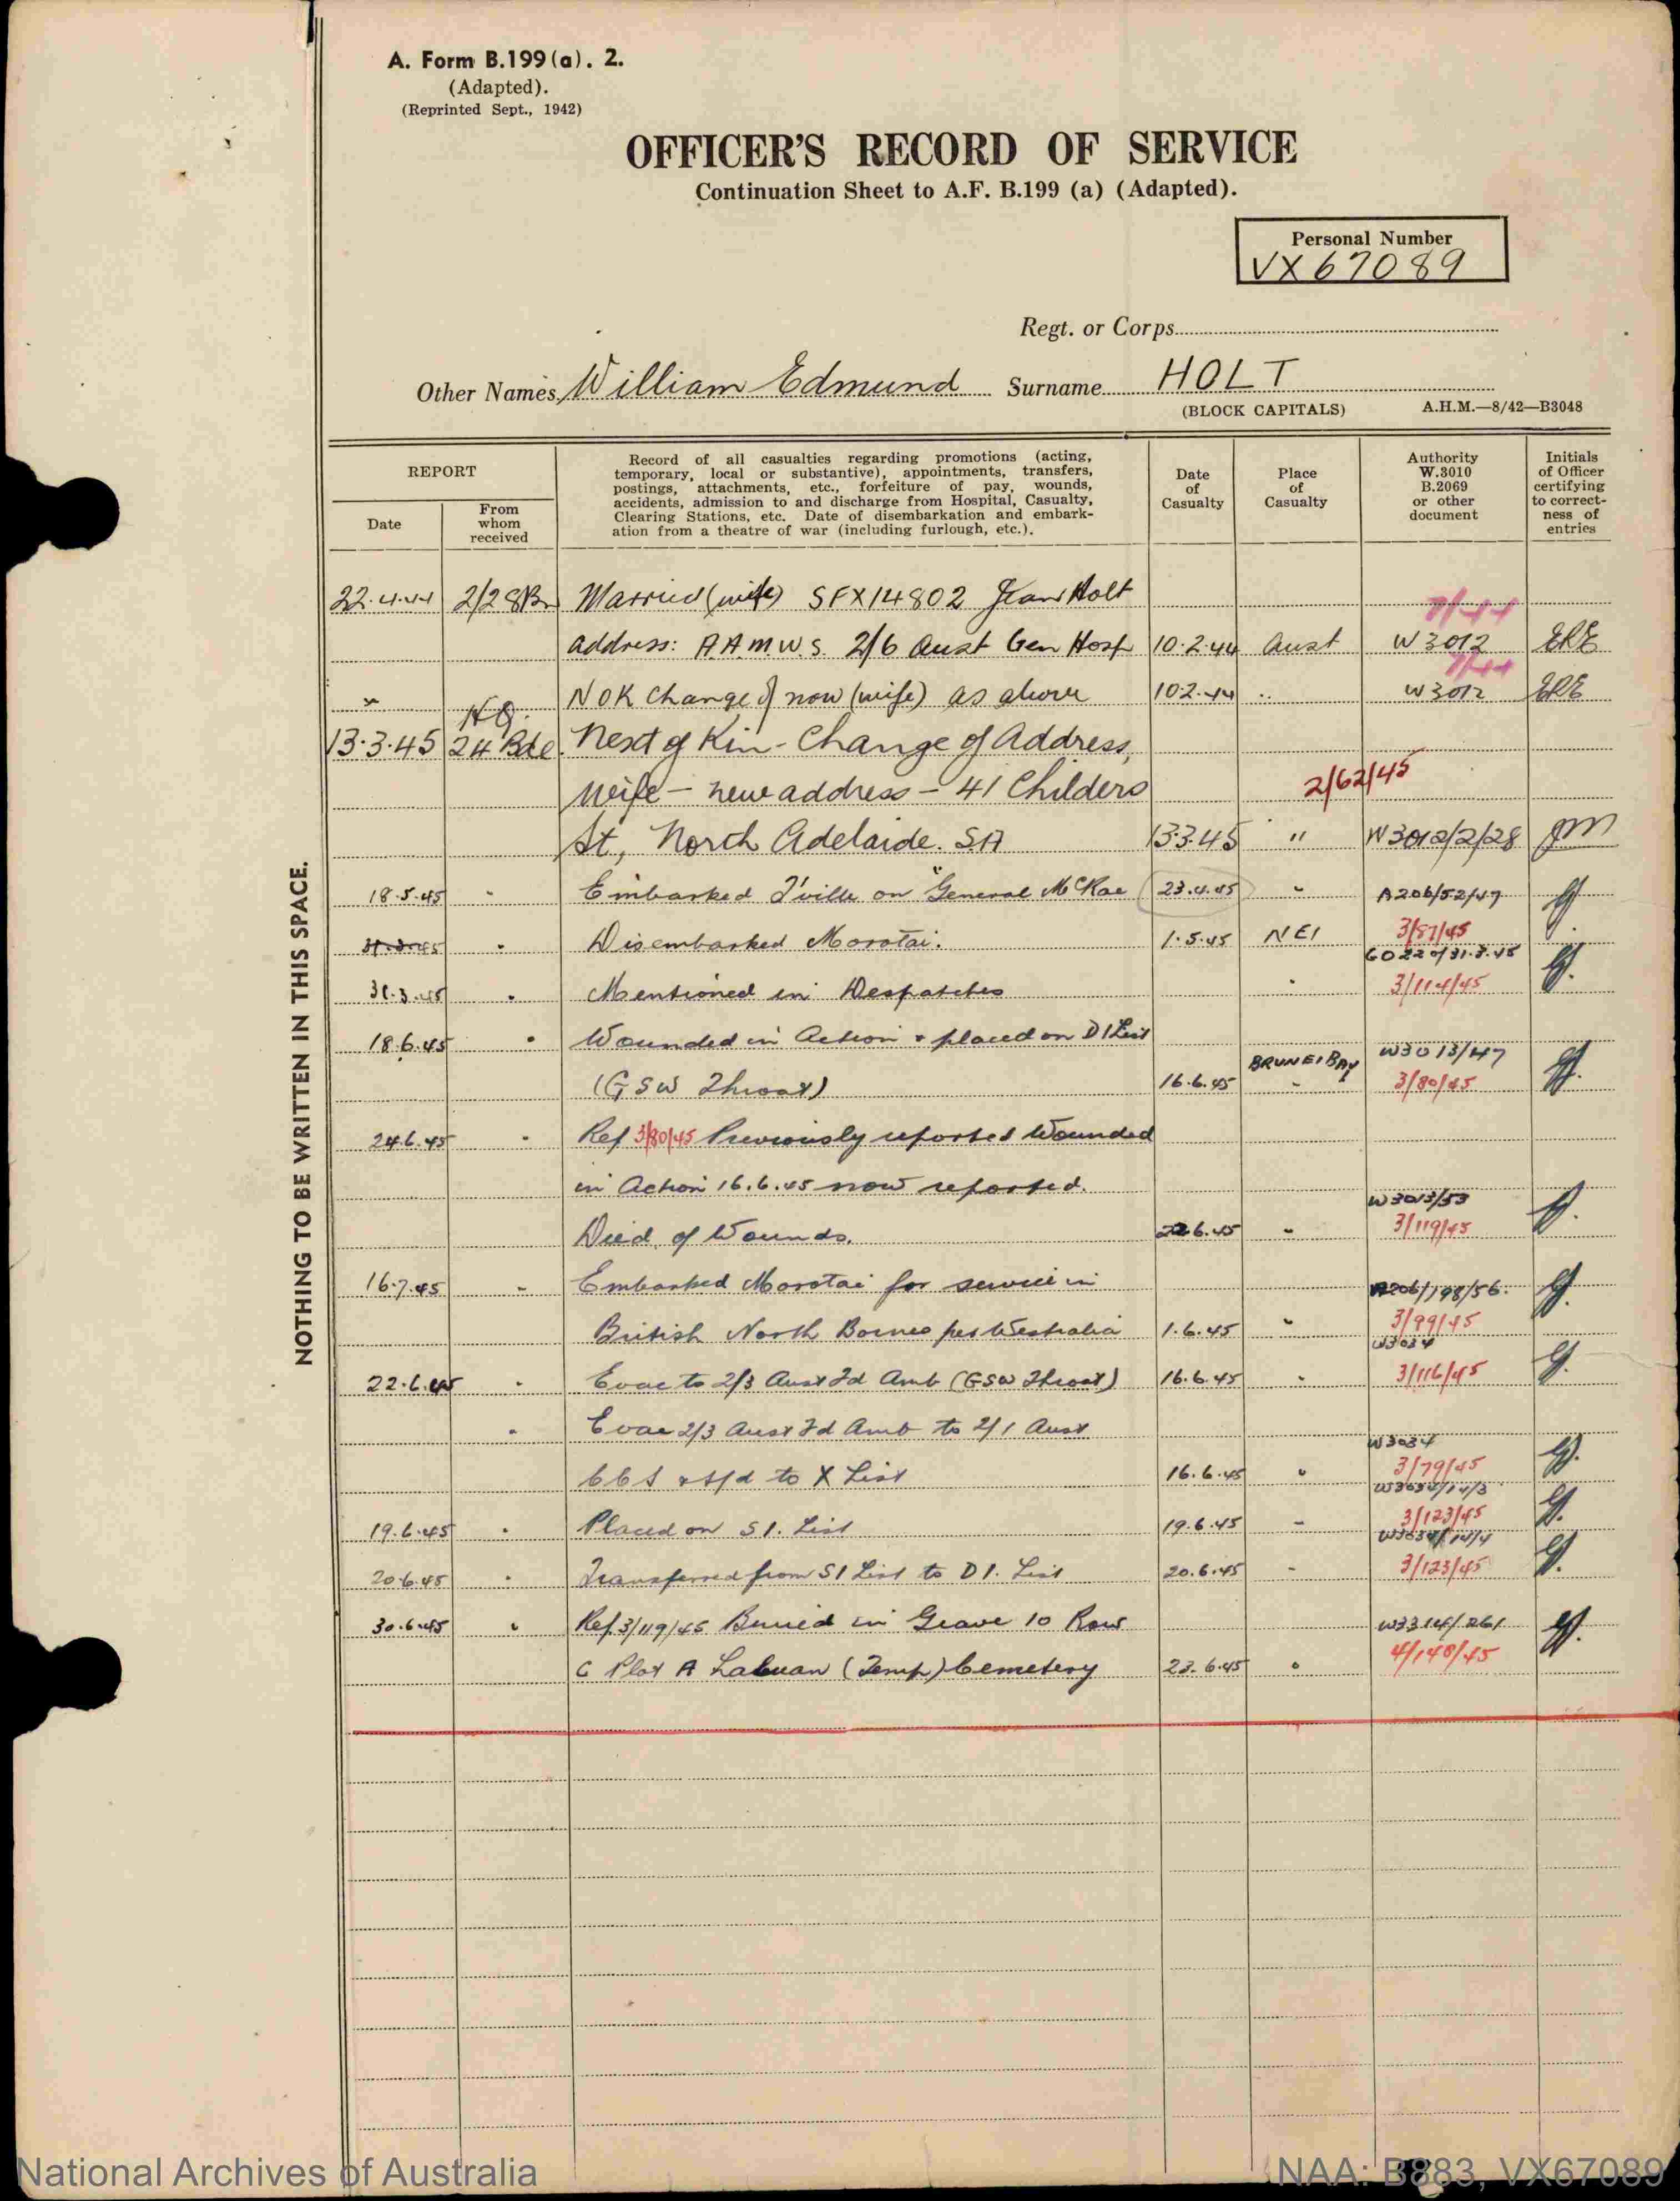 A. Form B.199 (a). 2.
(Adapted).
(Reprinted Sept., 1942)
OFFICER'S RECORD OF SERVICE
Continuation Sheet to A.F. B.199 (a) (Adapted).
Personal Number
VX67089
Regt. or Corps
Other Names William Edmund Surname HOLT
(BLOCK CAPITALS) A.H.M.—8/42—B3048
NOTHING TO BE WRITTEN IN THIS SPACE.
REPORT
Date
From whom received
Record of all casualties regarding promotions (acting,
temporary, local or substantive), appointments, transfers,
postings, attachments, etc., forfeiture of pay, wounds,
accidents, admission to and discharge from Hospital, Casualty,
Clearing Stations, etc. Date of disembarkation and embark-
ation from a theatre of war (including furlough, etc.).
Date of Casualty
Place of Casualty
Authority W.3010 B.2069 or other document
Initials of Officer certifying to correct-ness of entries
22.4.44 2/28Bn Married (wife) SFX14802 Jean Holt
address: A.A.M.W.S. 2/6 Aust Gen Hosp 10.2.44 Aust W3012 ERE
" NOK change of now (wife) as above 10.2.44 " W3012 ERE
HQ.
13.3.45 24 Bde Next of Kin - Change of Address,
Wife - new address - 41 Childers 2/62/45
St, North Adelaide. SA 13.3.45 " W3012/2/28 JM
18.5.45 " Embarked T'ville on "General McRae 23.4.45 " A206/52/47
3/87/45
31.3.45 " Disembarked Morotai. 1.5.45 NEI
GO220/31.3.45
31.3.45 " Mentioned in Despatches " 3/114/45
18.6.45 " Wounded in Action & placed on DI List
BRUNEI BAY W3013/47
(GSW Throat) 16.6.45 " 3/80/45
24.6.45 " Ref 3/80/45 Previously reported Wounded
in Action 16.6.45 now reported.
W3013/53
Died of Wounds. 22.6.45 " 3/119/45
16.7.45 " Embarked Morotai for service in A206/198/56.
British North Borneo per Westralia 1.6.45 " 3/99/45
W3034
22.6.45 " Evac to 2/3 Aust Fd Amb (GSW Throat) 16.6.45 " 3/116/45
" Evac 2/3 Aust Fd Amb to 2/1 Aust
W3034
CCS & tfd to X List 16.6.45 " 3/79/45
W3034/14/3
19.6.45 " Placed on SI. List 19.6.45 " 3/123/45
W3034/14/4
20.6.45 " Transferred from SI List to DI. List 20.6.45 " 3/123/45
30.6.45 " Ref. 3/119/45 Buried in Grave 10 Row W3314/261
C Plot A Labuan (Temp) Cemetery 23.6.45 " 4/148/45
National Archives of Australia
NAA: B883, VX67089